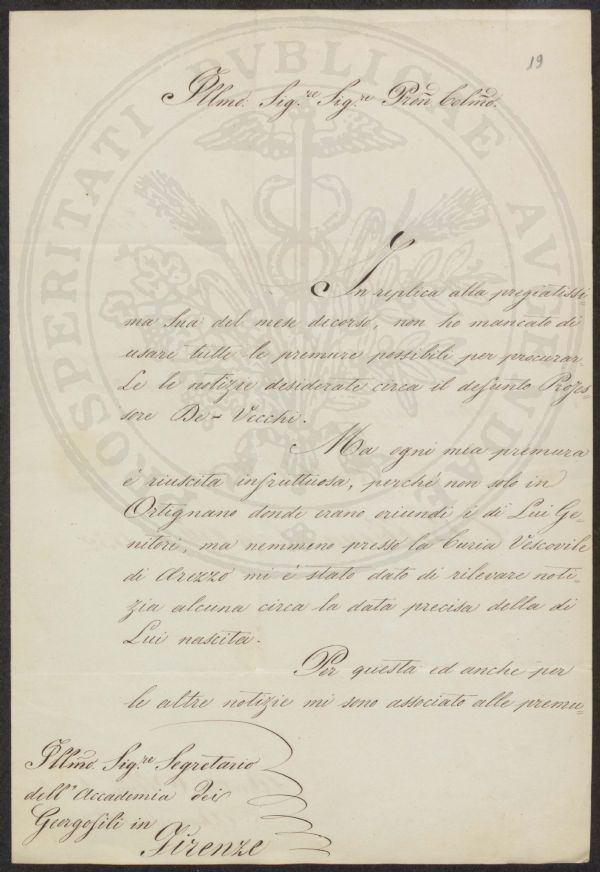 19
Illmo: Sig.re Sig.re Proñ Colmo.
In replica alla pregiatissi-
ma Sua del mese decorso, non ho mancato di
usare tutte le premure possibili per procurar-
Le le notizie desiderate circa il defunto Profes-
sore De-Vecchi.
Ma ogni mia premura
è riuscita infruttuosa, perchè non solo in
Ortignano donde erano oriundi i di Lui Ge-
nitori, ma nemmeno presso la Curia Vescovile
di Arezzo mi è stato dato di rilevare noti-
zia alcuna circa la data precisa della di
Lui nascita.
Per questa ed anche per
le altre notizie mi sono associato alle premu-
Illmo. Sig.re Segretario
dell'Accademia dei
Georgofili in
Firenze
PROSPERITATI PVBLICAE AVGENDAE